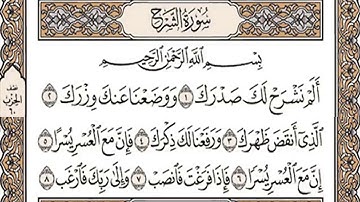 سُورَةُ الشَّرْحِ
بِسْمِ ٱللَّهِ ٱلرَّحْمَٰنِ ٱلرَّحِيمِ
أَلَمْ نَشْرَحْ لَكَ صَدْرَكَ ١ وَوَضَعْنَا عَنكَ وِزْرَكَ ٢
ٱلَّذِىٓ أَنقَضَ ظَهْرَكَ ٣ وَرَفَعْنَا لَكَ ذِكْرَكَ ٤ فَإِنَّ مَعَ ٱلْعُسْرِ يُسْرًا ٥
إِنَّ مَعَ ٱلْعُسْرِ يُسْرًا ٦ فَإِذَا فَرَغْتَ فَٱنصَبْ ٧ وَإِلَىٰ رَبِّكَ فَٱرْغَب ٨
نصف
الحزب
٦٠